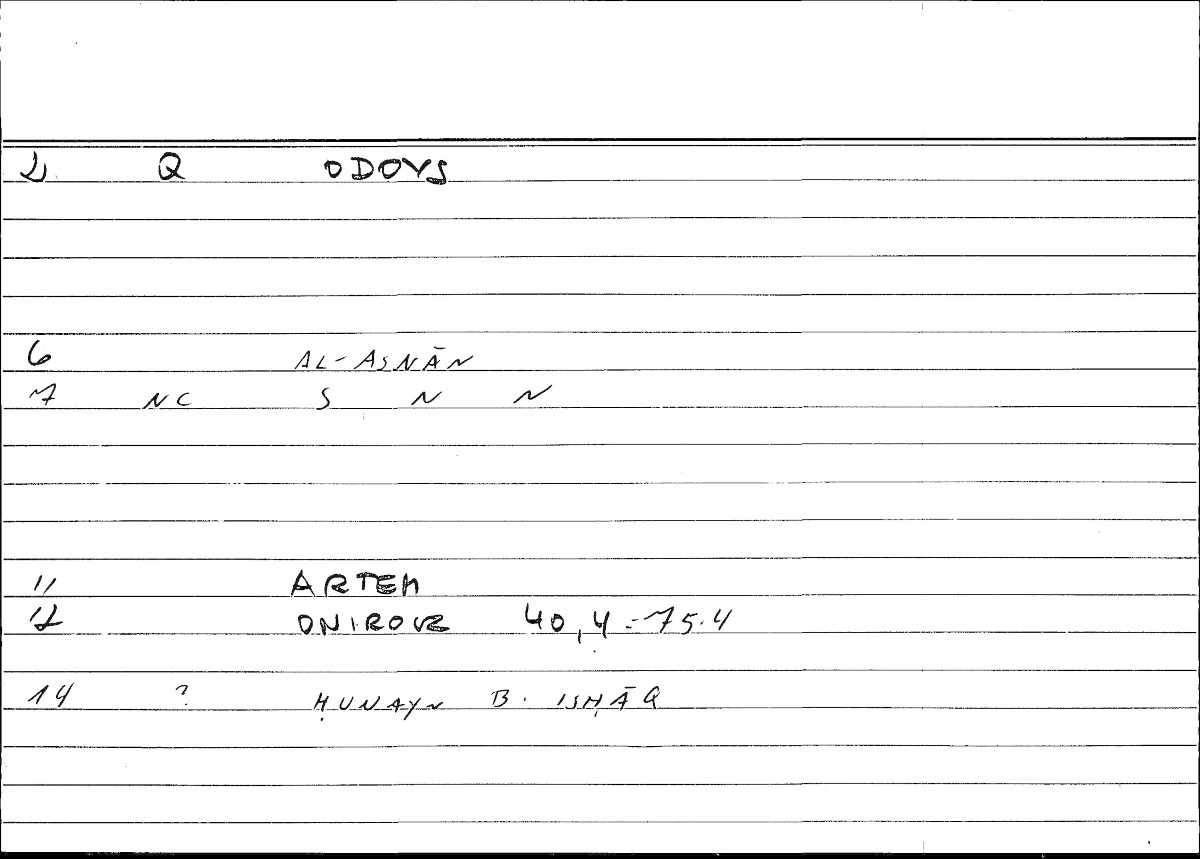 2 Q ODOYS
6 AL-ASNĀN
7 NC S N N
11 ARTEM
12 ONIROCR 40,4 = 75.4
14 ? ḤUNAYN B. ISḤĀQ